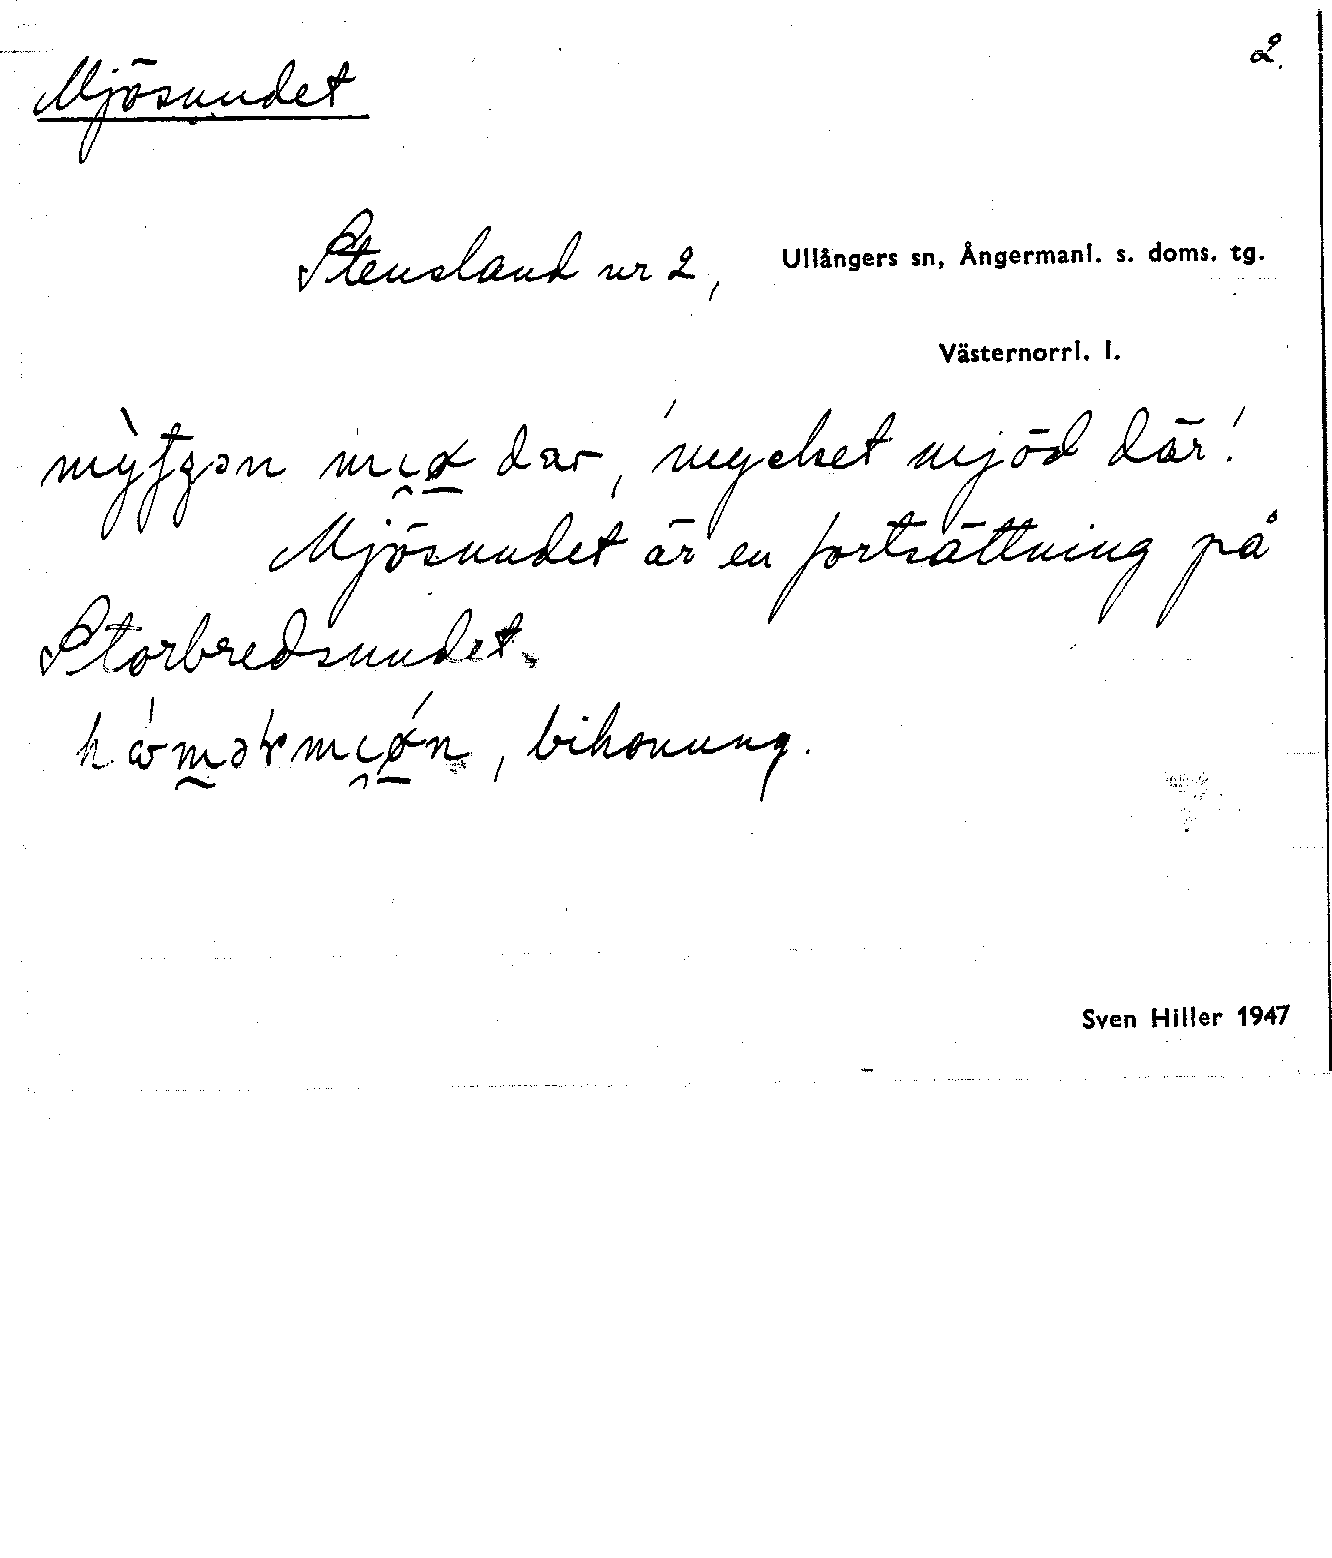 2.
Mjösundet
Stensland nr 2, Ullångers sn, Ångermanl. s. doms. tg.
Västernorrl. l.
dar, 'mycket mjöd där'.
Mjösundet är en fortsättning på
Storbredsundet.
, bihonung.
Sven Hiller 1947